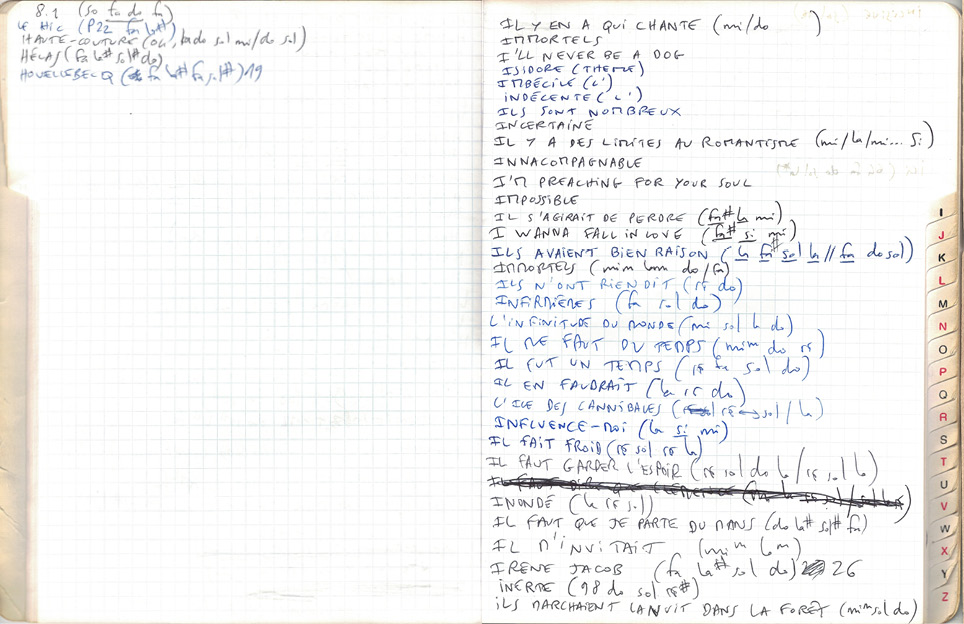 8.1 (so fa do fa)
LE HIC (P22 fa la#)
HAUTE-COUTURE (OU, la do sol mi/do sol)
HÉLAS (fa la# sol# do)
HOUELLEBECQ (fa la# fa sol#) 19
IL Y EN A QUI CHANTE (mi/do )
IMMORTELS
I'LL NEVER BE A DOG
ISIDORE (THEME)
IMBÉCILE (L')
INDÉCENTE (L')
ILS SONT NOMBREUX
INCERTAINE
IL Y A DES LIMITES AU ROMANTISME (mi/la/mi... Si)
INNACOMPAGNABLE
I'M PREACHING FOR YOUR SOUL
IMPOSSIBLE
IL S'AGIRAIT DE PERDRE (fa# la mi)
I WANNA FALL IN LOVE (fa# si mi)
ILS AVAIENT BIEN RAISON (la fa# sol la // fa do sol)
IMMORTELS (mim lam do/fa)
ILS N'ONT RIEN DIT (ré do)
INFIRMIÈRES (fa sol do)
L'INFINITUDE DU MONDE (mi sol la do)
IL ME FAUT DU TEMPS (mim do ré)
IL FUT UN TEMPS (ré fa sol do)
IL EN FAUDRAIT (la ré do)
L'ILE DES CANNIBALES (ré ↔ sol / la)
INFLUENCE-MOI (la si mi)
IL FAIT FROID (ré sol ré la)
IL FAUT GARDER L'ESPOIR (ré sol do la / ré sol la)
INONDÉ (la ré sol)
IL FAUT QUE JE PARTE DU MANS (do la# sol# fa)
IL M'INVITAIT (mim lam)
IRENE JACOB (fa la# sol do) 26
INERTE (98 do sol ré#)
ILS MARCHAIENT LA NUIT DANS LA FORÊT (mim sol do)
I
J
K
L
M
N
O
P
Q
R
S
T
U
V
W
X
Y
Z